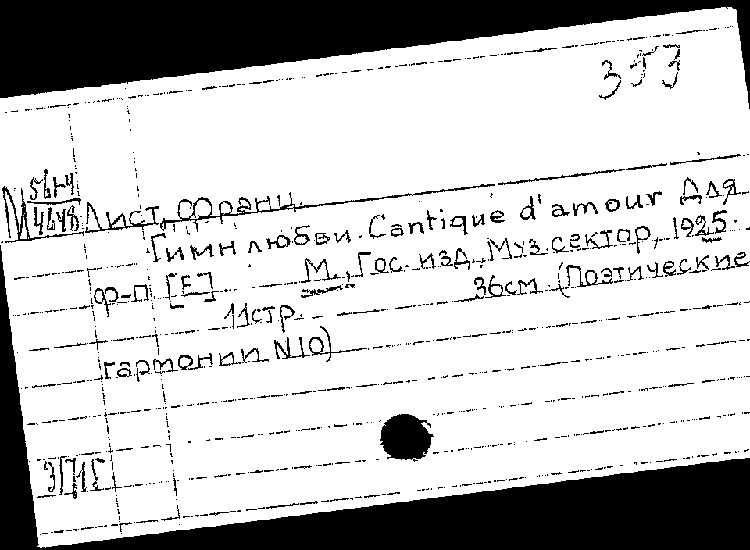 353
М 56г4/4648 Лист, Франц.
Гимн любви. Cantique d'amour Для
ф-п [E] М., Гос. изд., Муз. сектор, 1925.
11 стр. 36см (Поэтические
гармонии N10)